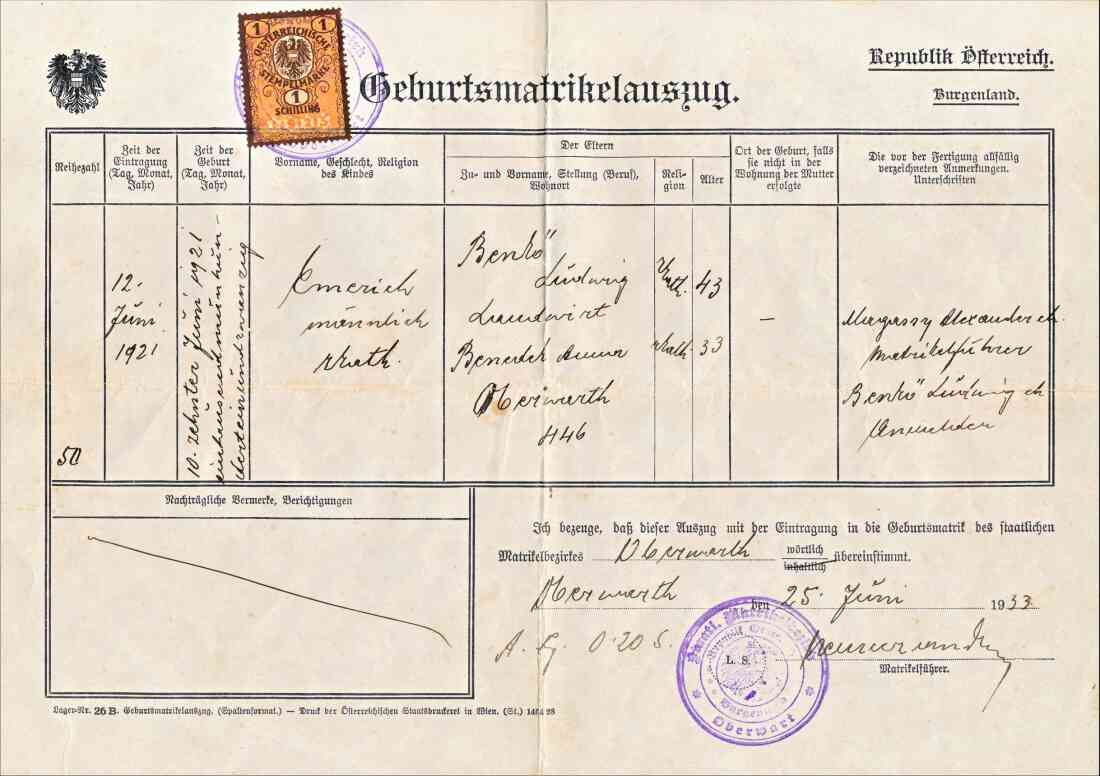 1 1
OESTERREICHISCHE
STEMPELMARKE
1
SCHILLING
Geburtsmatrikelauszug.
Republik Österreich.
Burgenland.
Reihezahl
Zeit der
Eintragung
(Tag, Monat,
Jahr)
Zeit der
Geburt
(Tag, Monat,
Jahr)
Vorname, Geschlecht, Religion
des Kindes
Der Eltern
Zu- und Vorname, Stellung (Beruf),
Wohnort
Reli-
gion
Alter
Ort der Geburt, falls
sie nicht in der
Wohnung der Mutter
erfolgte
Die vor der Fertigung allfällig
verzeichneten Anmerkungen.
Unterschriften
50
12.
Juni
1921
10. zehnter Juni 1921
eintausendneunhun-
derteinundzwanzig
Emerich
männlich
rkath.
Benkö
Ludwig
Landwirt
Benedek Anna
Oberwarth
446
rkath. 43
rkath. 33
—
Magassy Alexander eh.
Matrikelführer
Benkö Ludwig eh
Anmelder
Nachträgliche Vermerke, Berichtigungen
Ich bezeuge, daß dieser Auszug mit der Eintragung in die Geburtsmatrik des staatlichen
Matrikelbezirkes Oberwarth wörtlich inhaltlich übereinstimmt.
Oberwarth den 25. Juni 1933.
A. Eg. 0.20 S.
L. S.
Burgenland
Oberwart
Matrikelführer.
Lager-Nr. 26 B. Geburtsmatrikelauszug. (Spaltenformat.) — Druck der Österreichischen Staatsdruckerei in Wien. (St.) 1464 28